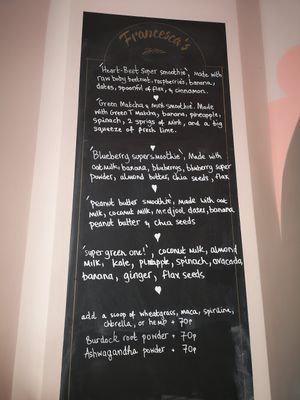 Francesca's
'Heart-Beet super smoothie', Made with
raw baby beetroot, raspberries, banana,
dates, spoonful of flax, & cinnamon.
'Green Matcha & mint smoothie'. Made
with Green T Matcha, banana, pineapple,
spinach, 2 sprigs of mint, and a big
squeeze of fresh lime.
'Blueberry supersmoothie', Made with
oat milk, banana, blueberrys, blueberry super
powder, almond butter, chia seeds, flax
'Peanut butter smoothie', made with oat
milk, coconut milk, medjool dates, banana
peanut butter & chia seeds
'Super green one!', coconut milk, almond
milk, kale, pineapple, spinach, avacado,
banana, ginger, flax seeds
add a scoop of wheatgrass, maca, spirulina,
chlorella, or hemp + 70p
Burdock root powder + 70p
Ashwagandha powder + 70p